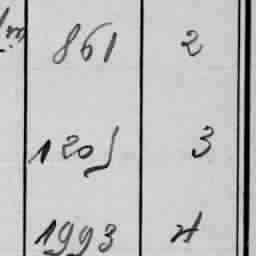 861 2
1205 3
1993 4